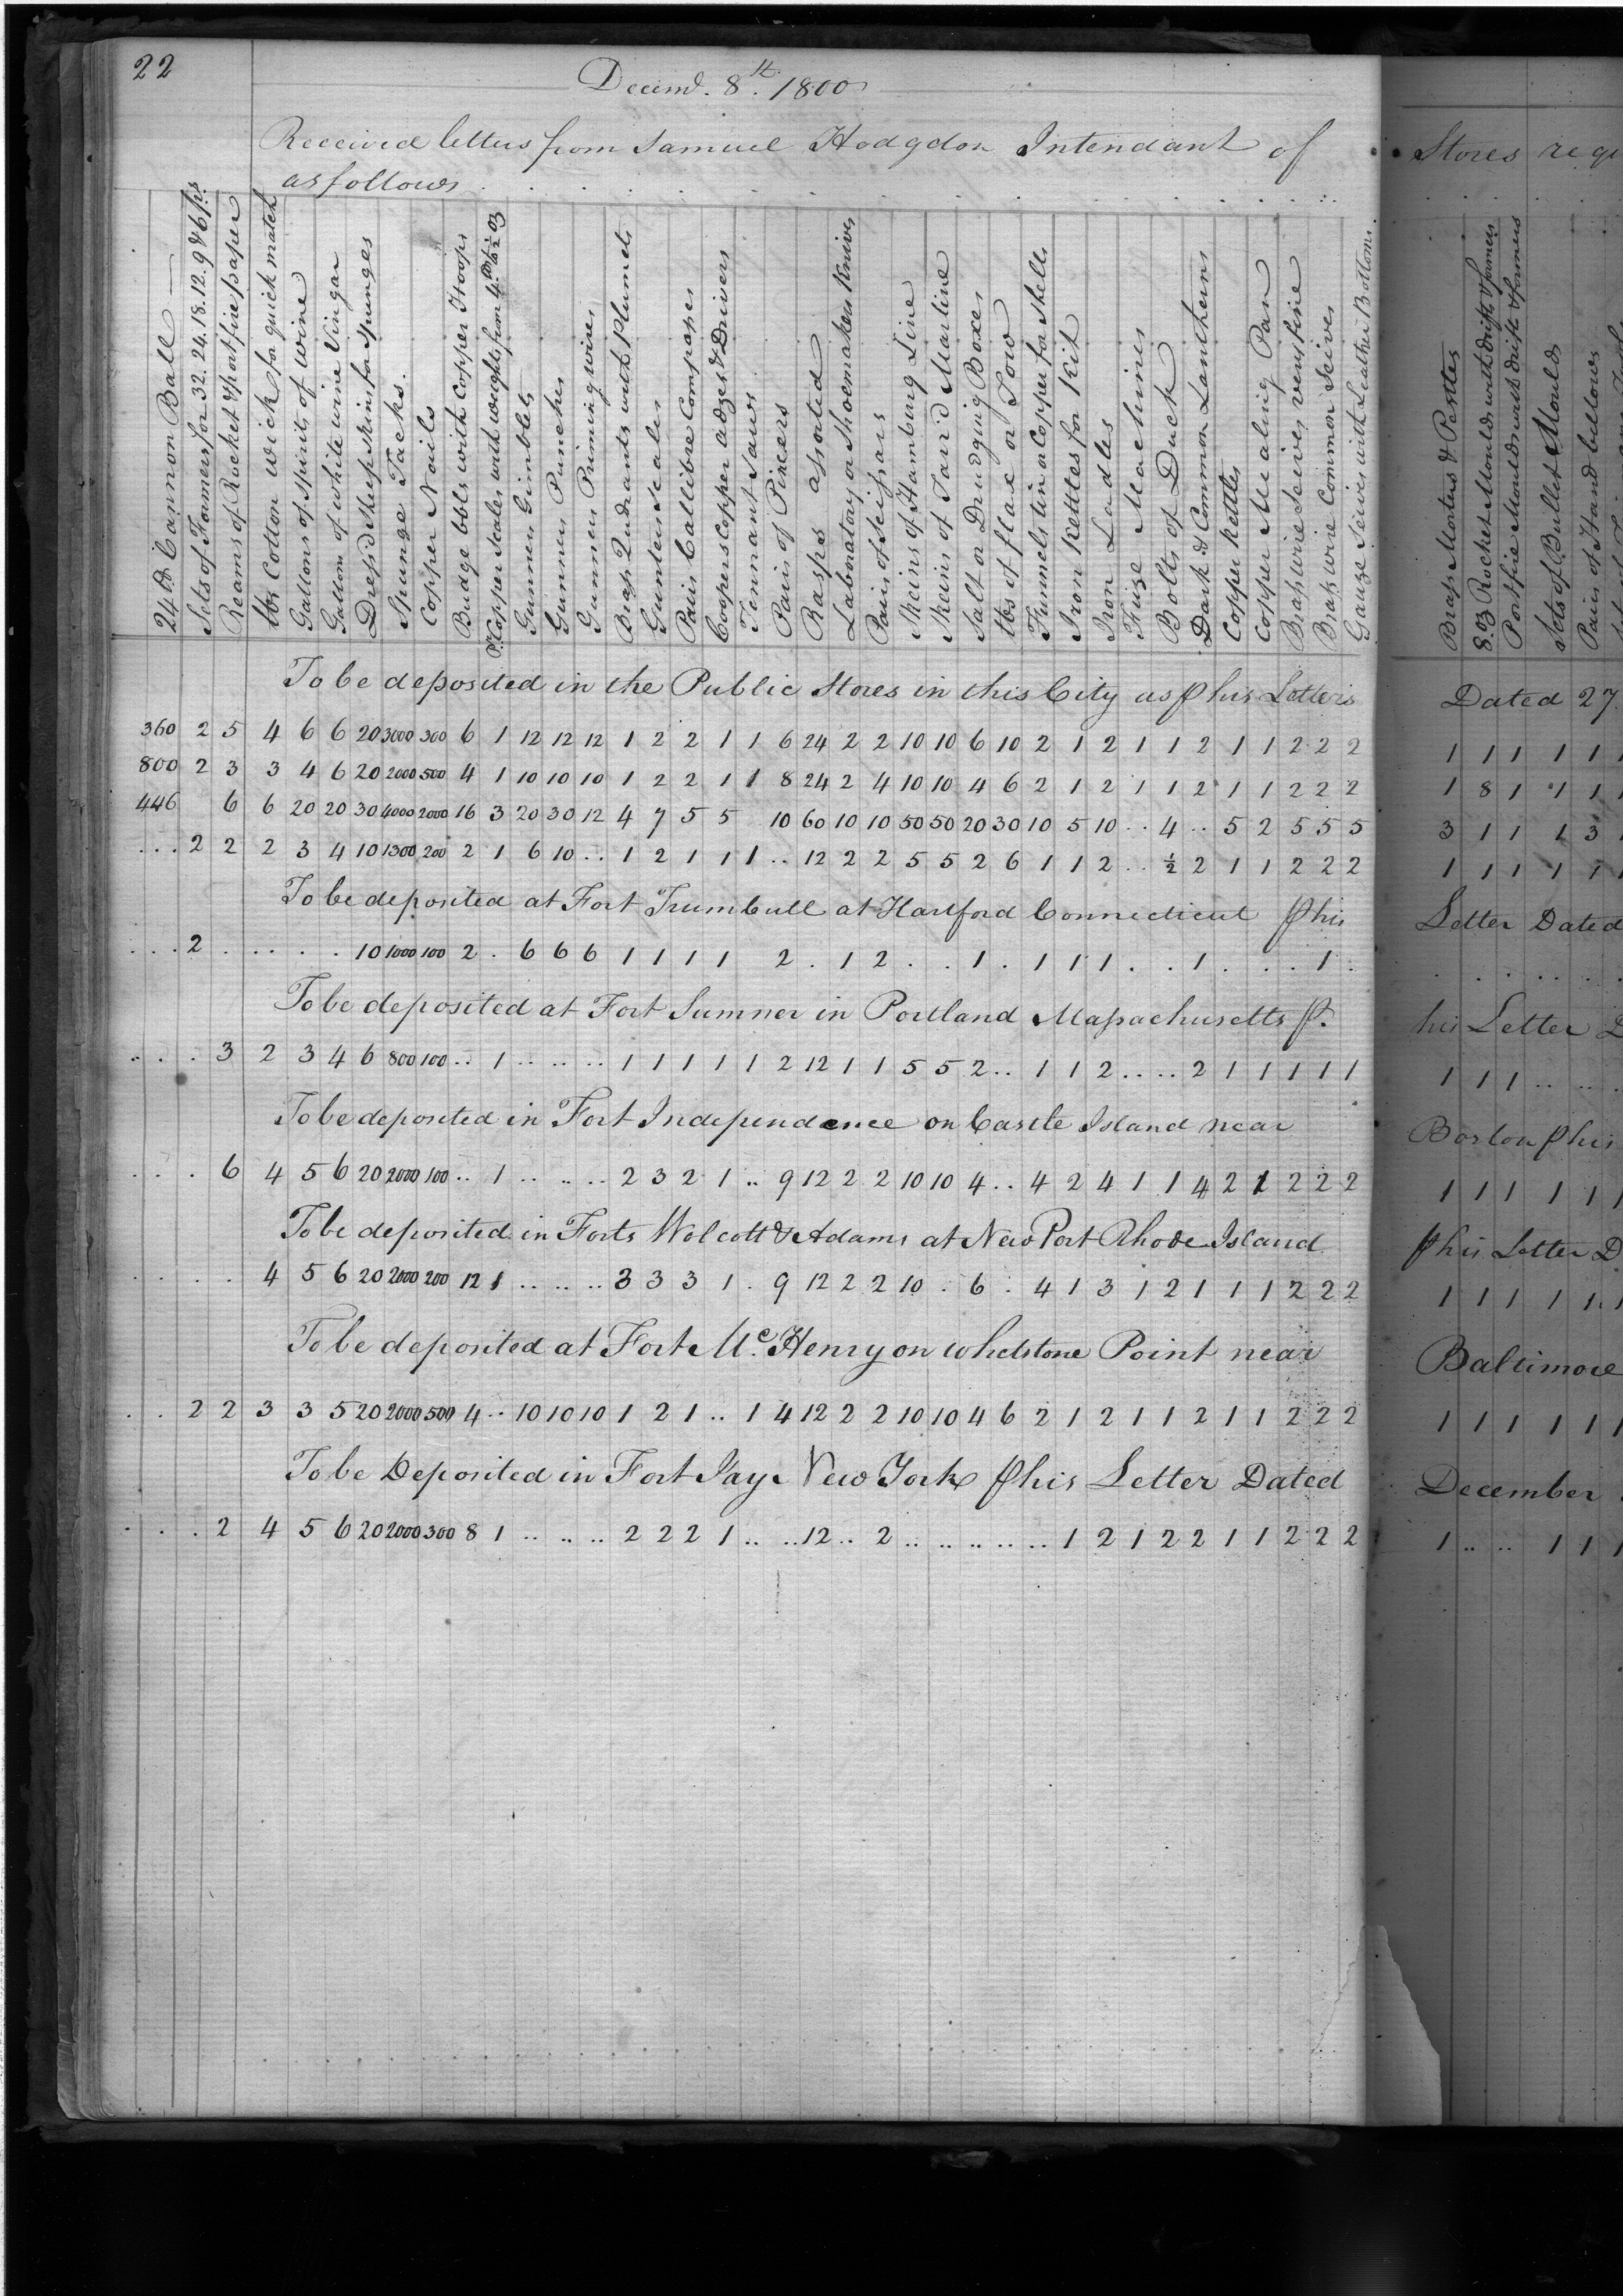 22
Decemr. 8th. 1800
Received letters from Samuel Hodgdon Intendant of
as follows
24 lb Cannon Ball
Sets of Formers for 32. 24. 18. 12. 9 & 6 prs.
Reams of Rocket & portfire paper
lbs Cotton wick for quick match
Gallons of Spirits of wine
Gallons of white wine Vingar
Dress'd Sheepskins for Spunges
Spunge Tacks.
Copper Nails
Budge bbls with Copper Hoops
Pr. Copper Scales with weights from 4 lb to ½ oz
Gunners Gimblets
Gunners Punches
Gunners Priming wires
Brass Quadrants with Plumets
Gunters Scales
Pairs Callibre Compasses
Coopers Copper adzes & Drivers
Tennant Saws
Pairs of Pincers
Rasps assorted
Laboratory or Shoemakers Knives
Pairs of Scissars
Skeins of Hambury Line
Skeins of Tar'd Marline
Salt or Drudging Boxes
lbs of flax or Tow
Funnels tin or Copper for Shells
Iron Kettles for Kit
Iron Ladles
Fuze Machines
Bolts of Duck
Dark & Common Lantherns
Copper Kettles
Copper Mealing Pan
Brass wire Seives very fine
Brass wire Common Seives
Gauze Seives with Leather Bottoms
To be deposited in the Public Stores in this City as p his Letters
360 2 5 4 6 6 20 3000 300 6 1 12 12 12 1 2 2 1 1 6 24 2 2 10 10 6 10 2 1 2 1 1 2 1 1 2 2 2
800 2 3 3 4 6 20 2000 500 4 1 10 10 10 1 2 2 1 1 8 24 2 4 10 10 4 6 2 1 2 1 1 2 1 1 2 2 2
446 6 6 20 20 30 4000 2000 16 3 20 30 12 4 7 5 5 10 60 10 10 50 50 20 30 10 5 10 .. 4 .. 5 2 5 5 5
... 2 2 2 3 4 10 1300 200 2 1 6 10 .. 1 2 1 1 1 .. 12 2 2 5 5 2 6 1 1 2 .. ½ 2 1 1 2 2 2
To be deposited at Fort Trumbull at Hartford Connecticut p his
... 2 . . . . . 10 1000 100 2 . 6 6 6 1 1 1 1 2 . 1 2 . . 1 . 1 1 1 . . 1 . . . 1 .
To be deposited at Fort Sumner in Portland Massachusetts p.
.. . . 3 2 3 4 6 800 100 .. 1 .. .. .. 1 1 1 1 1 2 12 1 1 5 5 2 .. 1 1 2 .. .. 2 1 1 1 1 1
To be deposited in Fort Independence on Castle Island near
. . . 6 4 5 6 20 2000 100 .. 1 .. .. .. 2 3 2 1 .. 9 12 2 2 10 10 4 .. 4 2 4 1 1 4 2 1 2 2 2
To be deposited in Forts Wolcott & Adams at New Port Rhode Island
. . . . 4 5 6 20 2000 200 12 1 .. .. .. 3 3 3 1 . 9 12 2 2 10 . 6 . 4 1 3 1 2 1 1 1 2 2 2
To be deposited at Fort Mc.Henry on whetstone Point near
. . 2 2 3 3 5 20 2000 500 4 .. 10 10 10 1 2 1 .. 1 4 12 2 2 10 10 4 6 2 1 2 1 1 2 1 1 2 2 2
To be Deposited in Fort Jay New York p his Letter Dated
. . . 2 4 5 6 20 2000 300 8 1 .. .. .. 2 2 2 1 .. .. 12 .. 2 .. .. .. .. .. 1 2 1 2 2 1 1 2 2 2
Stores
Brass Mortars & Pestles
8. oz Rocket Moulds with drifts & formers
Portfire Moulds with drifts & formers
Sets of Bullet Moulds
Pairs of Hand bellows
Dated 27
1 1 1 1 1
1 8 1 1 1
3 1 1 1 3
1 1 1 1 1
Letter Dated
his Letter
1 1 1 .. ..
Boston p his
1 1 1 1 1
p his Letter D
1 1 1 1 1
Baltimore
1 1 1 1 1
December
1 .. .. 1 1